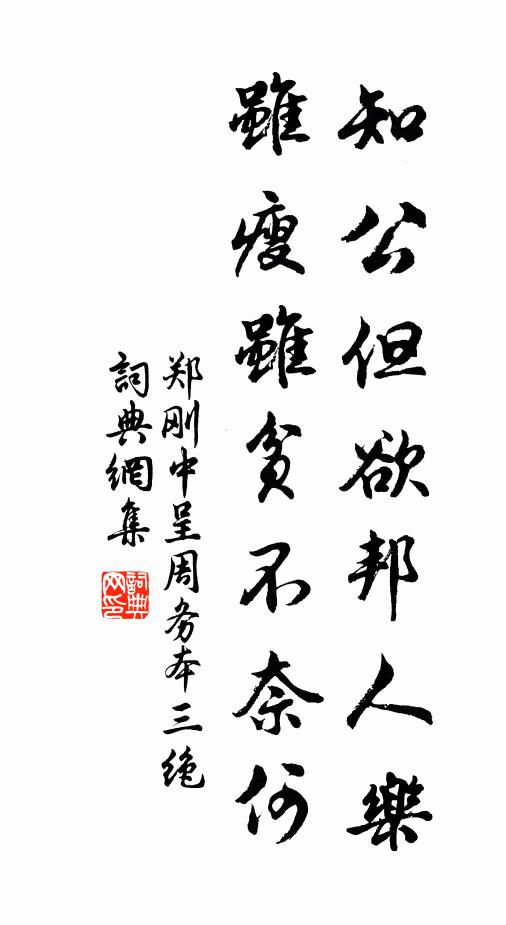 知公但欲邦人樂
雖瘦雖貧不奈何
郑刚中呈周务本三绝
詞典網集
詞典网印